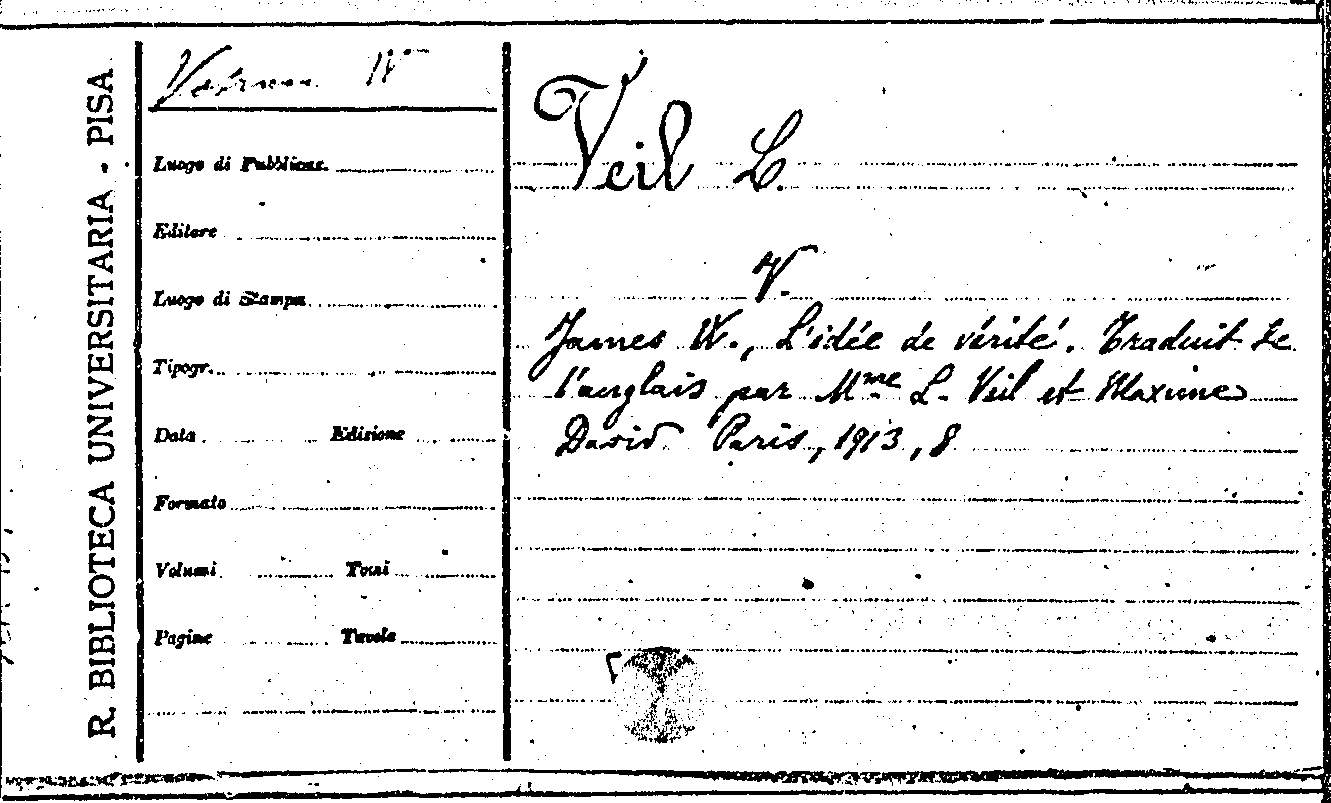 R. BIBLIOTECA UNIVERSITARIA - PISA
Luogo di Pubblicaz.
Editore
Luogo di Stampa
Tipogr.
Data Edizione
Formato
Volumi Tomi
Pagine Tavole
Veil L.
V.
James W., L'idée de vérité. Traduit de
l'anglais par Mme L. Veil et Maxime
David Paris, 1913, 8